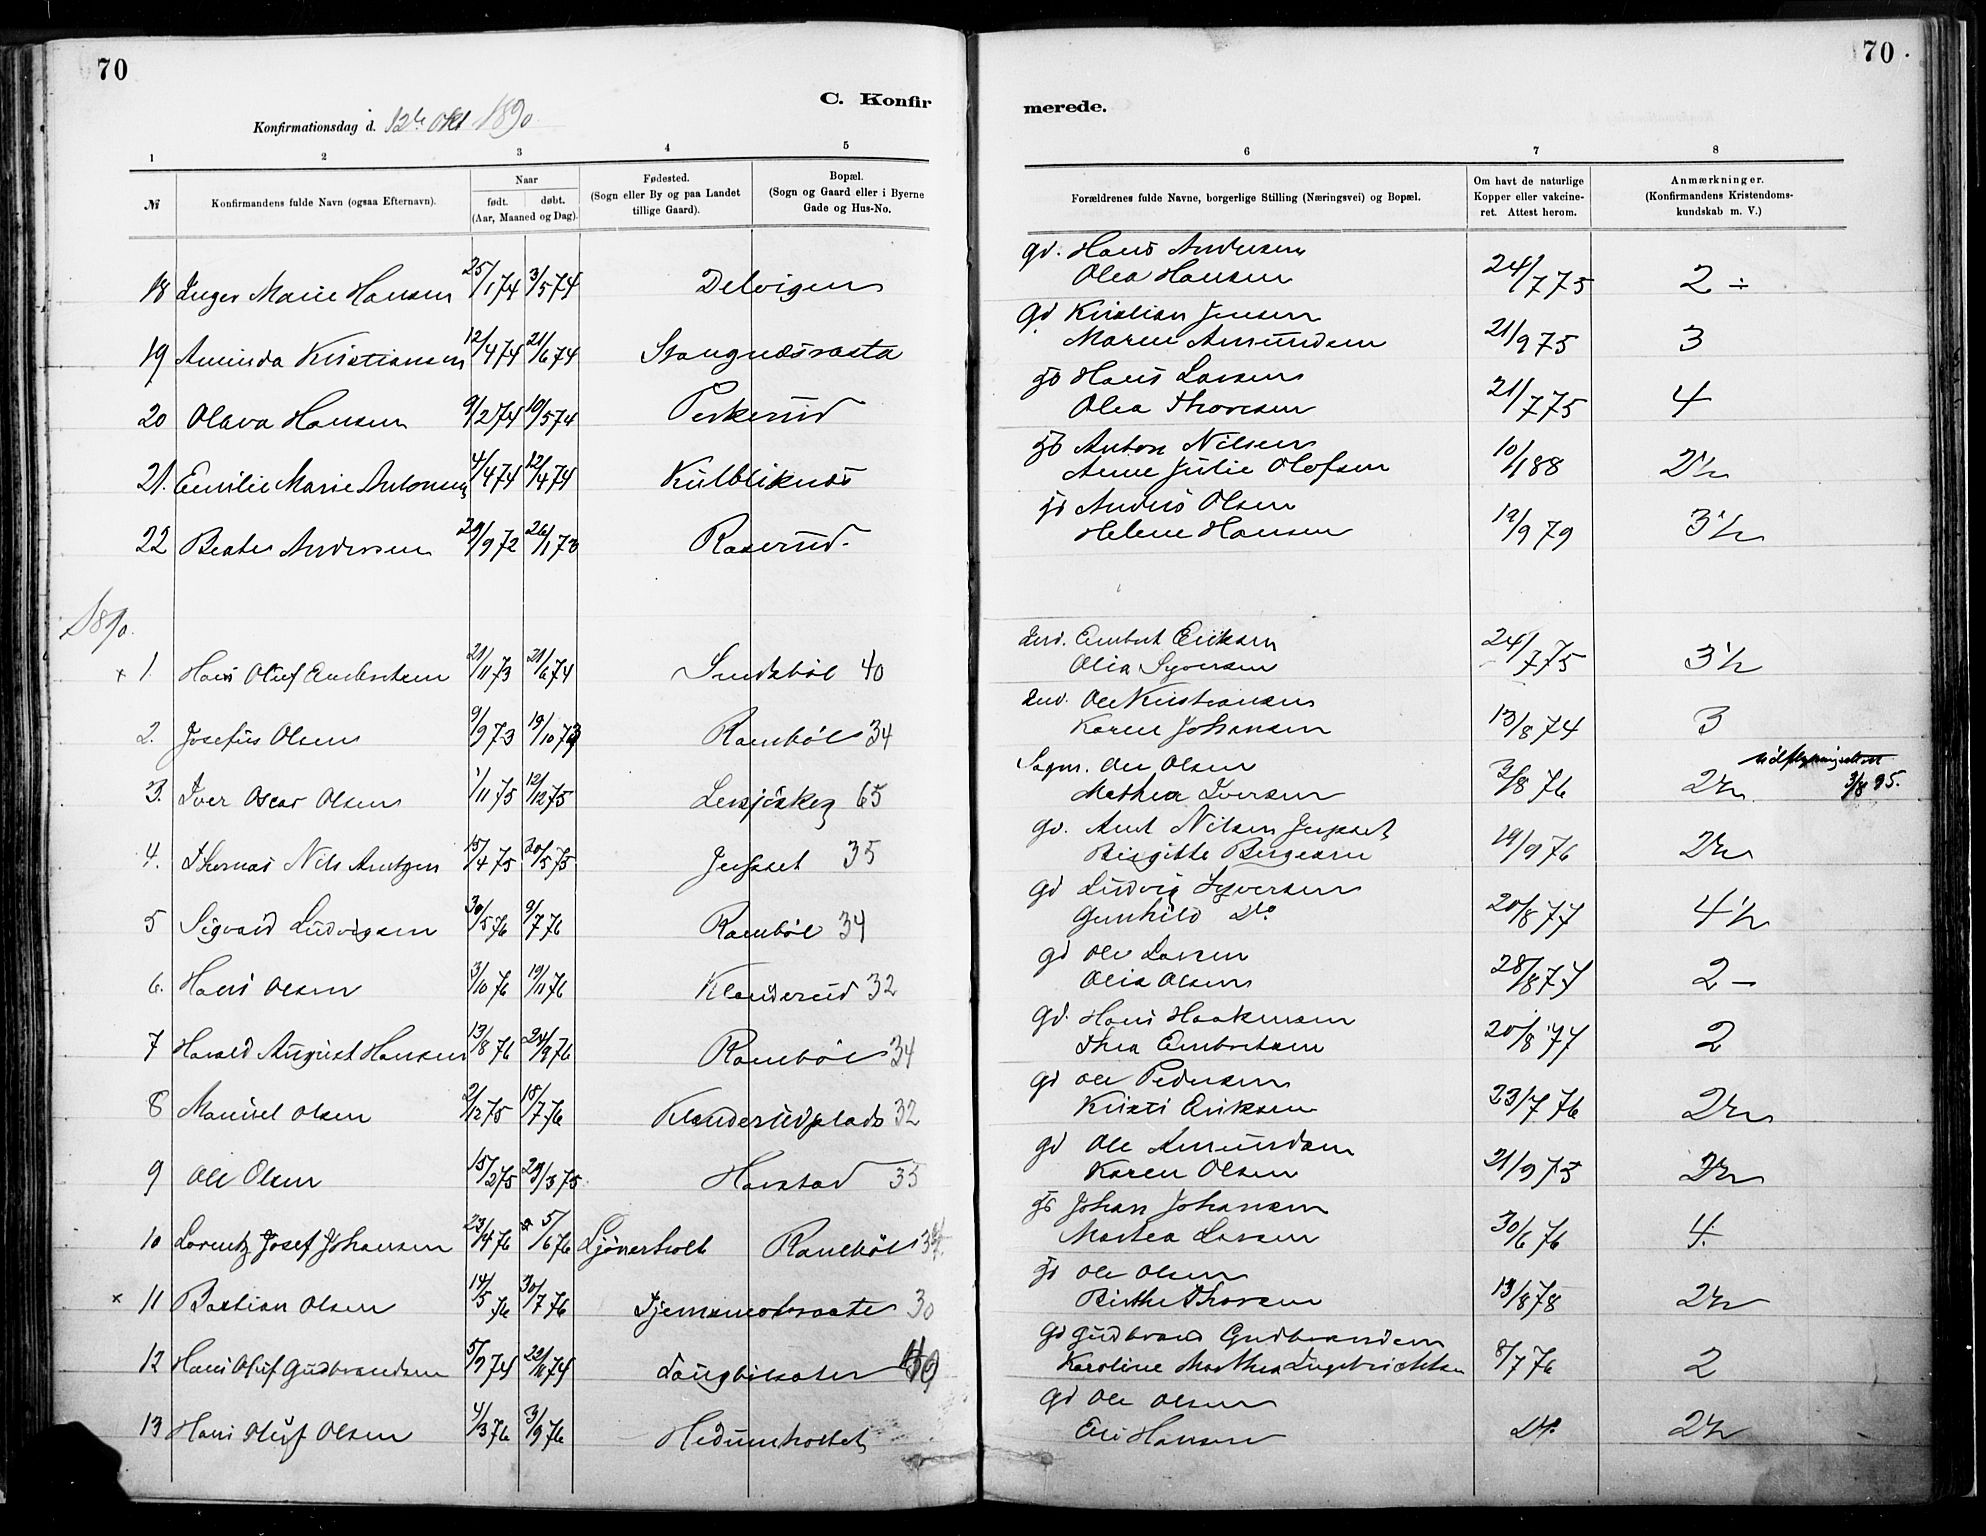 70
70
C. Konfir
merede.
Konfirmationsdag d. 12te Okt 1890.
1 2 3 4 5 6 7 8
№
Konfirmandens fulde Navn (ogsaa Efternavn).
Naar
født. døbt.
(Aar, Maaned og Dag).
Fødested.
(Sogn eller By og paa Landet
tillige Gaard).
Bopæl.
(Sogn og Gaard eller i Byerne
Gade og Hus-No.
Forældrenes fulde Navne, borgerlige Stilling (Næringsvei) og Bopæl.
Om havt de naturlige
Kopper eller vakcine-
ret. Attest herom.
Anmærkninger.
(Konfirmandens Kristendoms-
kundskab m. V.)
gd. Hans Andersen
18 Inger Marie Hansen 25/1 74 3/5 74 Delvigen Olea Hansen 24/7 75 2 ÷
gd Kristian Jensen
19 Aminda Kristiansen 12/4 74 21/6 74 Stangnæsrasta Maren Amundsen 21/9 75 3
Hans Larsen
20 Olava Hansen 9/2 74 10/5 74 Perkerud Olea Thoresen 21/7 75 4
Anton Nilsen
21. Emilie Marie Antonsen 4/4 74 12/4 74 Kulbliknæs Anne Julie Olofsen 10/1 88 2½
Anders Olsen
22 Beate Andersen 29/9 72 26/1 73 Raserud. Helene Hansen 19/9 79 3½
1890.
Ind. Embret Eriksen
× 1. Hans Oluf Embretsen 21/11 73 21/6 74 Sundsbøl 40 Olia Syversen 24/7 75 3½
Ind. Ole Kristiansen
2. Josefus Olsen 9/9 73 19/10 73 Rambøl 34 Karen Johansen 13/8 74 3
Sagm. Ole Olsen
3. Iver Oscar Olsen 1/11 75 12/12 75 65 Mathea Iversen 3/8 76 2½ 3/8 95.
gd. Amt Nilsen
4. Thomas Nils 15/4 75 20/5 75 35 Birgitte 19/9 76 2½
gd Ludvig Syversen
5 Sigvard Ludvigsen 30/5 76 9/7 76 Rambøl 34 Gunhild Do 20/8 77 4½
gd Ole Larsen
6. Hans Olsen 3/10 76 19/11 76 Klanderud 32 Olia Olsen 28/8 77 2 –
gd. Hans Haakensen
7 Harald August Hansen 13/8 76 24/9 76 Rambøl 34 Thea Embretsen 20/8 77 2
gd Ole Pedersen
8 Manuel Olsen 2/12 75 18/7 76 Klanderudplads 32 Kristi Eriksen 23/7 76 2½
gd Ole Amundsen
9 Ole Olsen 15/2 75 29/3 75 Harstad 35 Karen Olsen 21/9 75 2½
Johan Johansen
10 Lorentz Josef Johansen 23/4 76 5/6 76 Ljønerholt Rambøl 34 Martea Larsen 30/6 76 4.
Ole Olsen
× 11 Bastian Olsen 14/5 76 30/7 76 30 Birthe Thoresen 13/8 78 2½
gd Gudbrand Gudbrandsen
12 Hans Oluf Gudbrandsen 5/7 74 22/11 74 Langbilsater Karoline Marthea Ingebrichtsen 8/7 76 2
gd Ole Olsen
13 Hans Oluf Olsen 4/3 76 3/9 76 Hedumholtet Eli Hansen Do. 2½